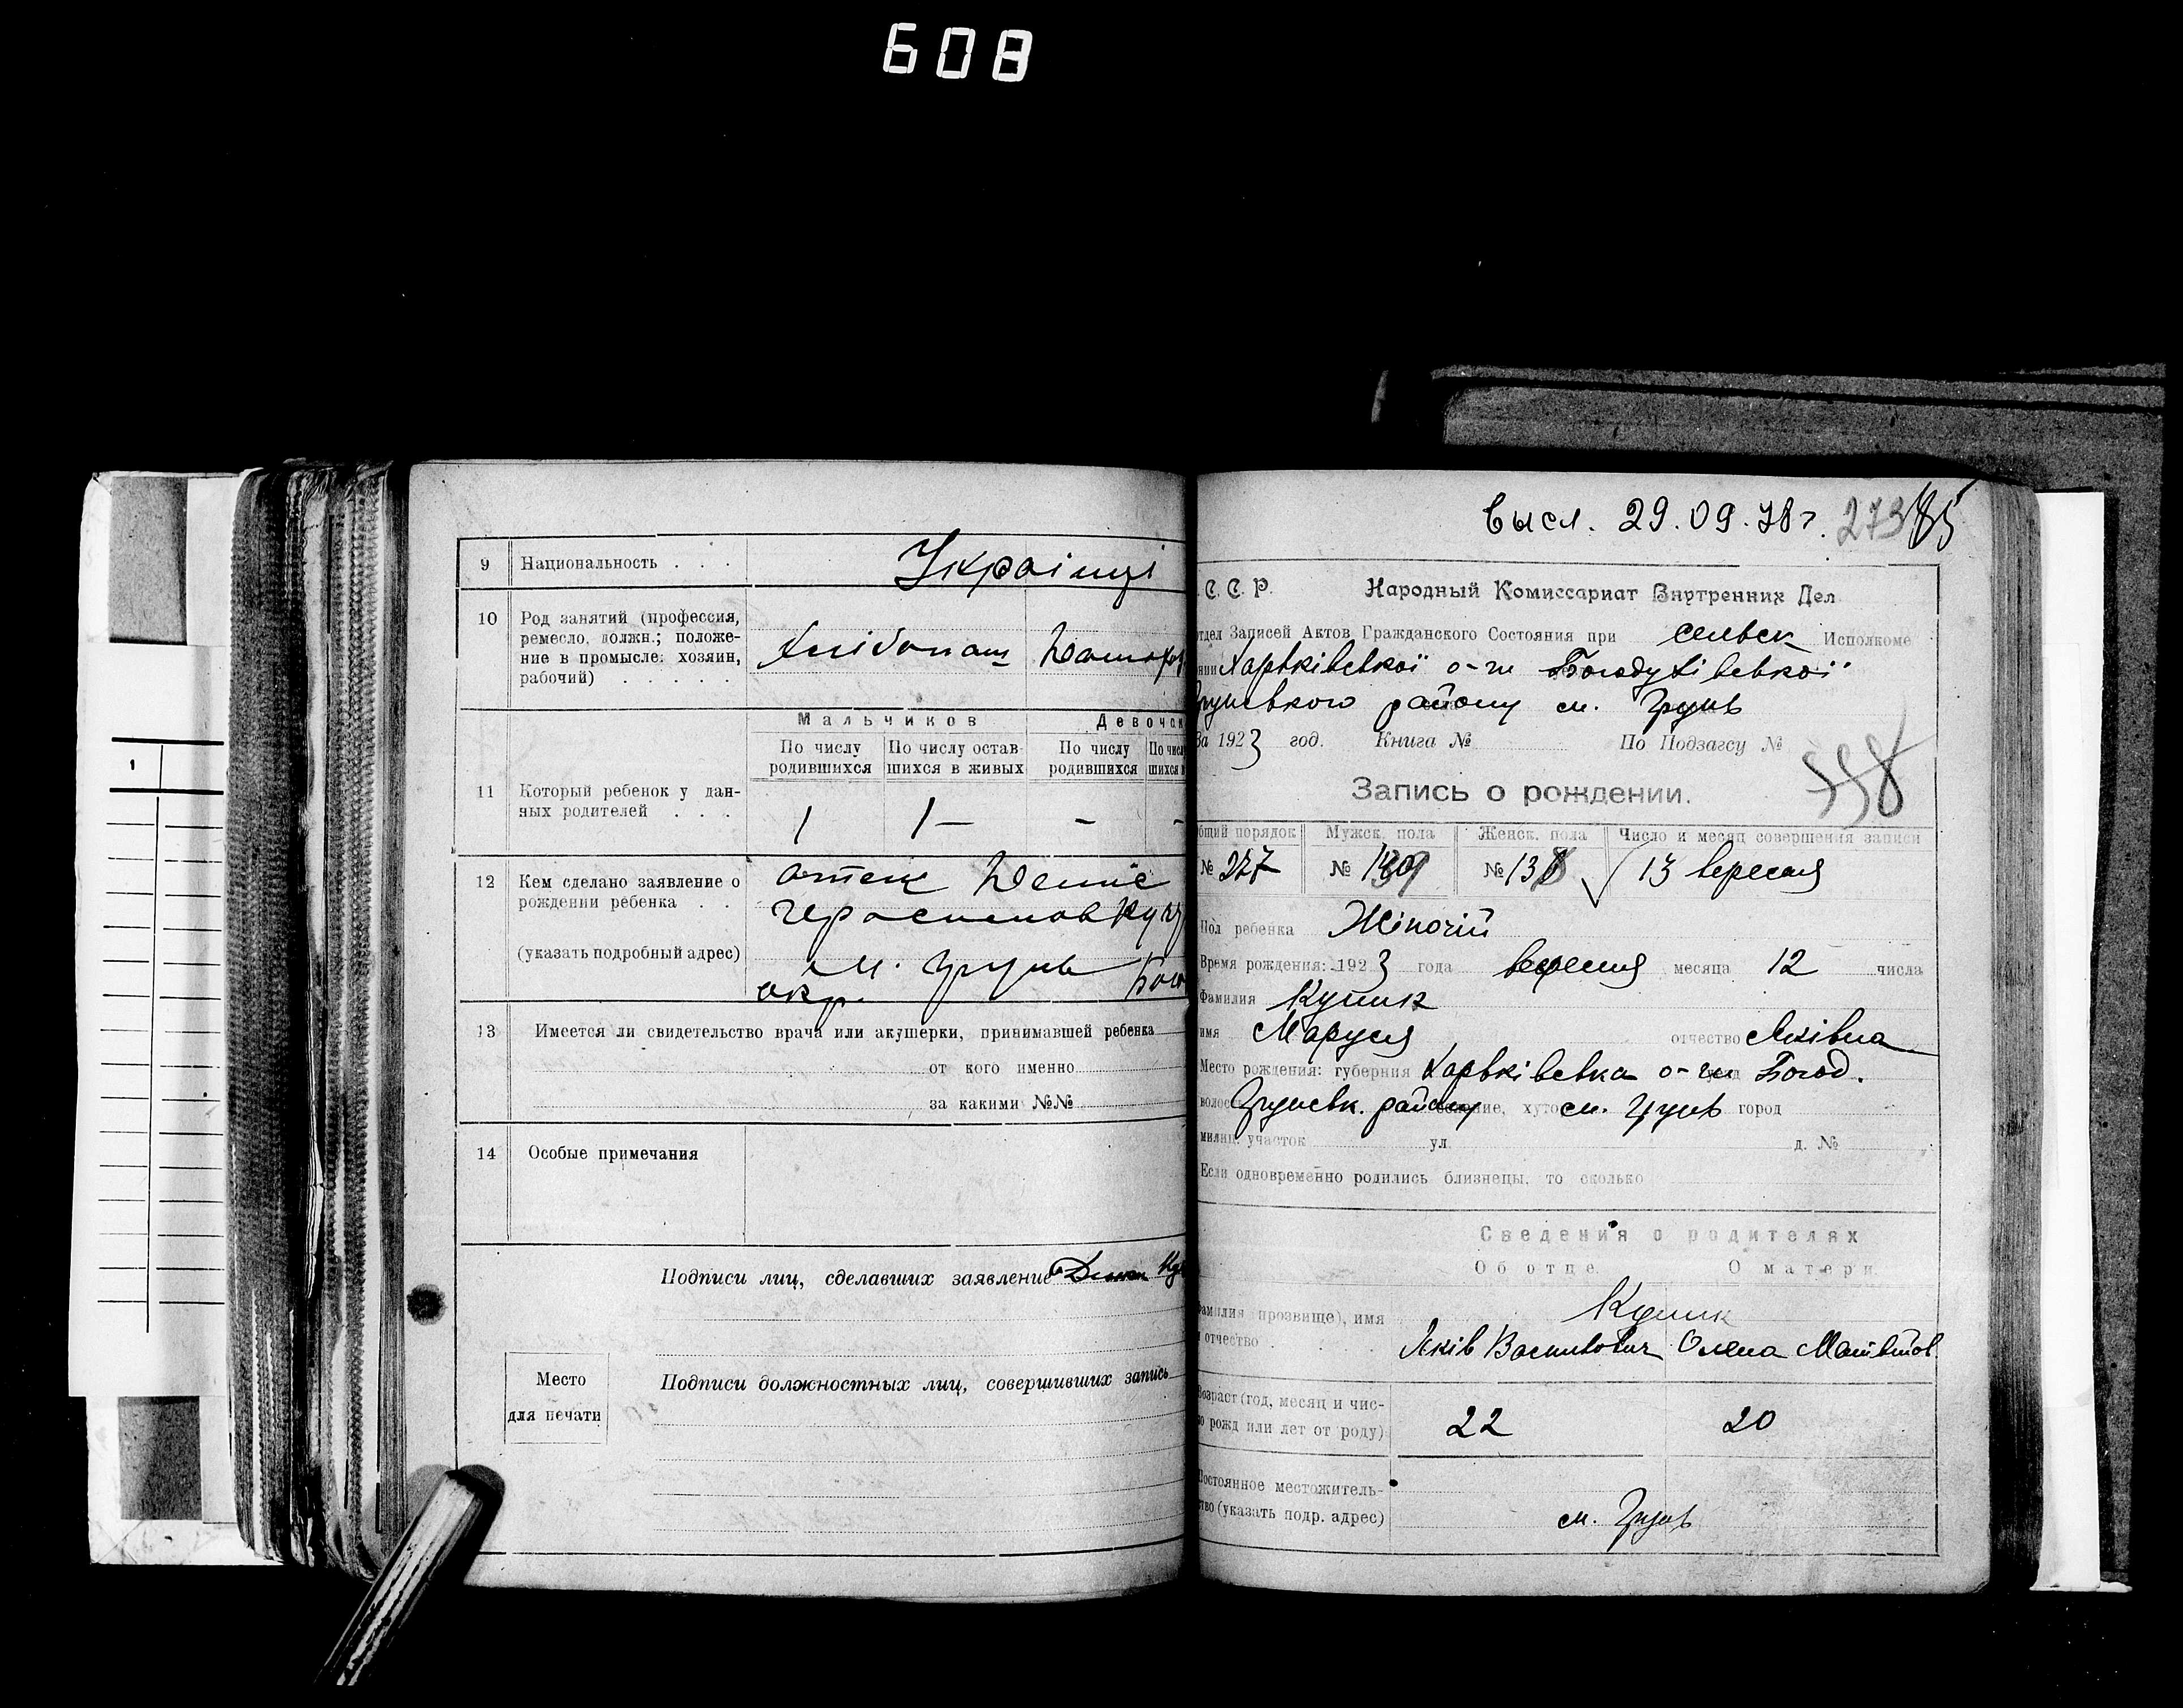 608
9 Национальность . . . Українці
10 Род занятий (профессия,
ремесло, должн.; положе-
ние в промысле: хозяин,
рабочий) . . . . . хлібопаш Домохоз
Мальчиков Девочек
По числу родившихся По числу остав-шихся в живых По числу родившихся По числ
11 Который ребенок у дан-
ных родителей . . . 1 1 – – -
12 Кем сделано заявление о
рождении ребенка . . отец Денис
Герасимов
(указать подробный адрес) м. Грунь Бого
окр.
13 Имеется ли свидетельство врача или акушерки, принимавшей ребенка
от кого именно
за какими №№
14 Особые примечания
Подписи лиц, сделавших заявление
Место
для печати
Подписи должностных лиц, совершивших запись
Высл. 29.09.78г. 273 85
С. С. Р. Народный Комиссариат Внутренних Дел
отдел Записей Актов Гражданского Состояния при сельск Исполкоме
Харьківської г-ни Богодухівської
Грунського району м. Грунь
За 1923 год. Книга № По Подзагсу №
Запись о рождении.
общий порядок Мужск. пола Женск. пола Число и месяц совершения записи
№ 277 № 139 № 138 13 вересня
Пол ребенка Жіночій
Время рождения: 1923 года вересня месяца 12 числа
Фамилия Куцик
имя Маруся отчество Яківна
Место рождения: губерния Харьківська г-ни Богод.
волос Грунськ. району селение, хутор м. Грунь город
милиц. участок ул. д. №
Если одновременно родились близнецы, то сколько
Сведения о родителях
Об отце О матери
Фамилия прозвище), имя Куцик
и отчество . . Яків Василович Олена Матвійов
Возраст (год, месяц и чис-
ло рожд или лет от роду) 22 20
Постоянное местожитель-
ство (указать подр. адрес) м. Грунь